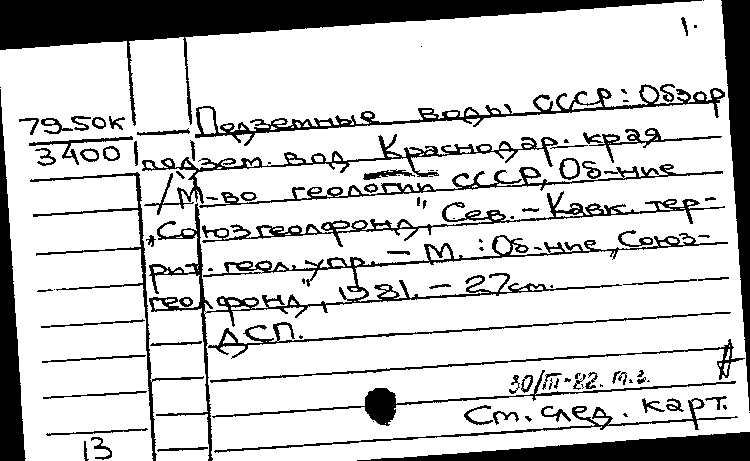 1.
79-50К
3400
Подземные воды СССР: Обзор
подзем. вод Краснодар. края
/М-во геологии СССР, Об-ние
„Союзгеолфонд", Сев.-Кавк. тер-
рит. геол. упр. - М.: Об-ние „Союз-
геолфонд", 1981. - 27см.
ДСП.
30/III-82. т.з.
См. след. карт.
13